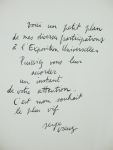 Voici un petit plan
de mes diverses participations
à l'Exposition Universelle.
Puissiez vous leur
accorder
un instant
de votre attention.
C'est mon souhait
le plus vif